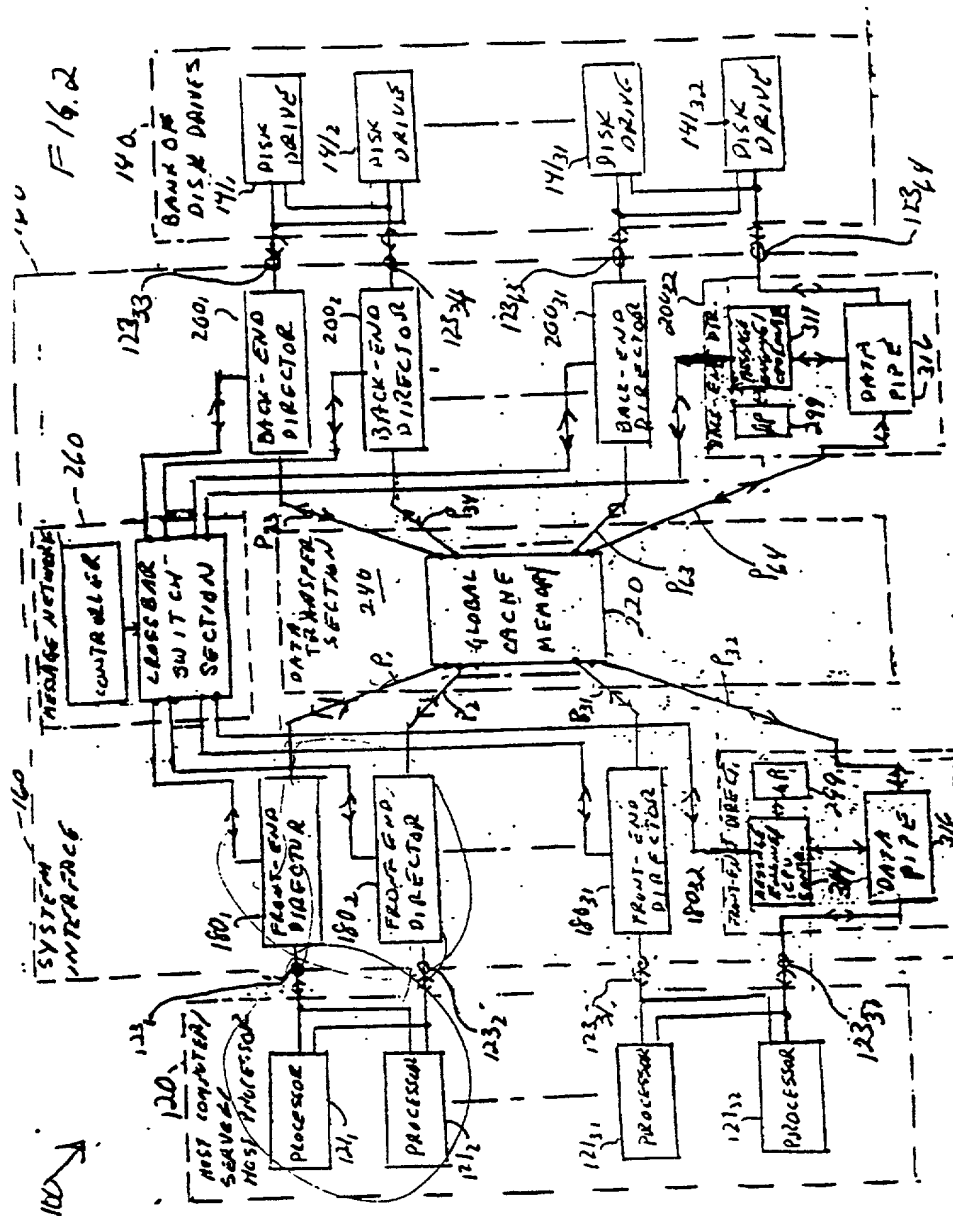 FIG. 2
100
120
HOST COMPUTER/
SERVER
HOST PROCESSOR
PROCESSOR
121₁
PROCESSOR
121₂
PROCESSOR
121₃₁
PROCESSOR
121₃₂
123₁
123₂
123₃₁
123₃₂
160
SYSTEM
INTERFACE
180₁
FRONT-END
DIRECTOR
180₂
FRONT-END
DIRECTOR
180₃₁
FRONT-END
DIRECTOR
180₃₂
FRONT-END DIRECT.
MESSAGE
314
299
DATA
PIPE
316
MESSAGE NETWORK
260
CONTROLLER
CROSSBAR
SWITCH
SECTION
DATA
TRANSFER
SECTION
240
GLOBAL
CACHE
MEMORY
220
P₁
P₂
P₃₁
P₃₂
P₃₃
P₃₄
P₆₃
P₆₄
BACK-END
DIRECTOR
200₁
BACK-END
DIRECTOR
200₂
BACK-END
DIRECTOR
200₃₁
200₃₂
BACK-END DIR.
MESSAGE
299
DATA
PIPE
316
123₃₃
123₃₄
123₆₃
123₆₄
140
BANK OF
DISK DRIVES
141₁
DISK
DRIVE
141₂
DISK
DRIVE
141₃₁
DISK
DRIVE
141₃₂
DISK
DRIVE